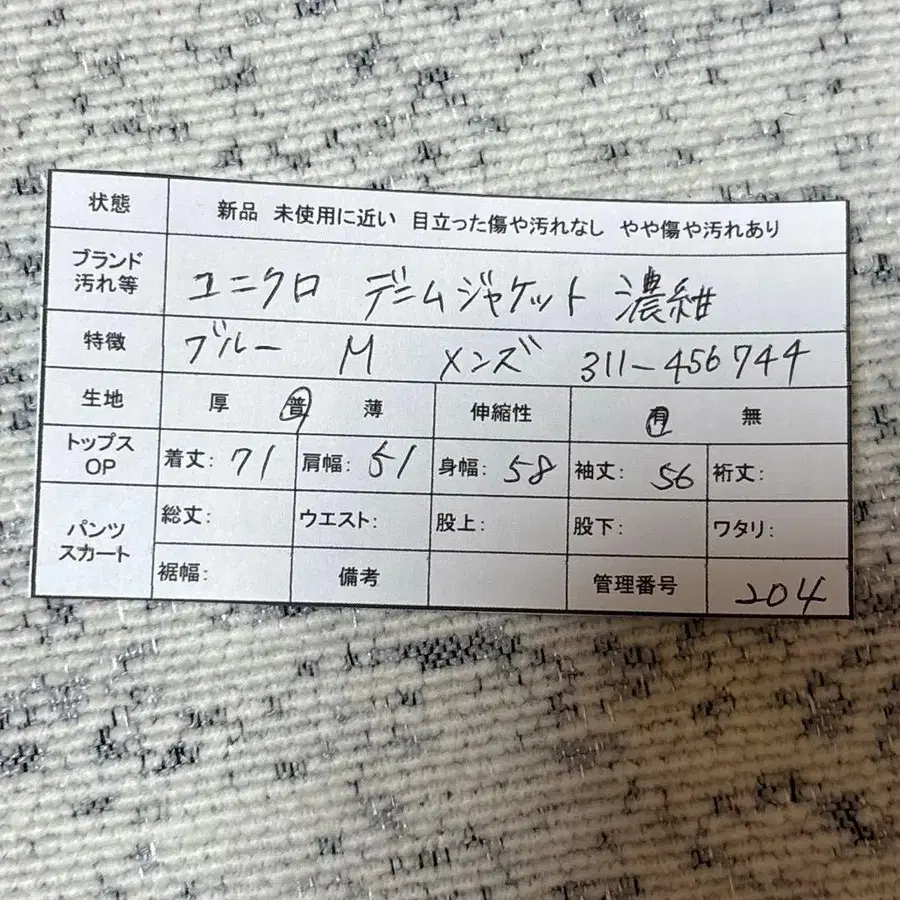 状態 新品 未使用に近い 目立った傷や汚れなし やや傷や汚れあり
ブランド
汚れ等 ユニクロ デニムジャケット 濃紺
特徴 ブルー M メンズ 311-456744
生地 厚 普 薄 伸縮性 有 無
トップス
OP 着丈: 71 肩幅: 51 身幅: 58 袖丈: 56 裄丈:
パンツ
スカート 総丈: ウエスト: 股上: 股下: ワタリ:
裾幅: 備考 管理番号 204